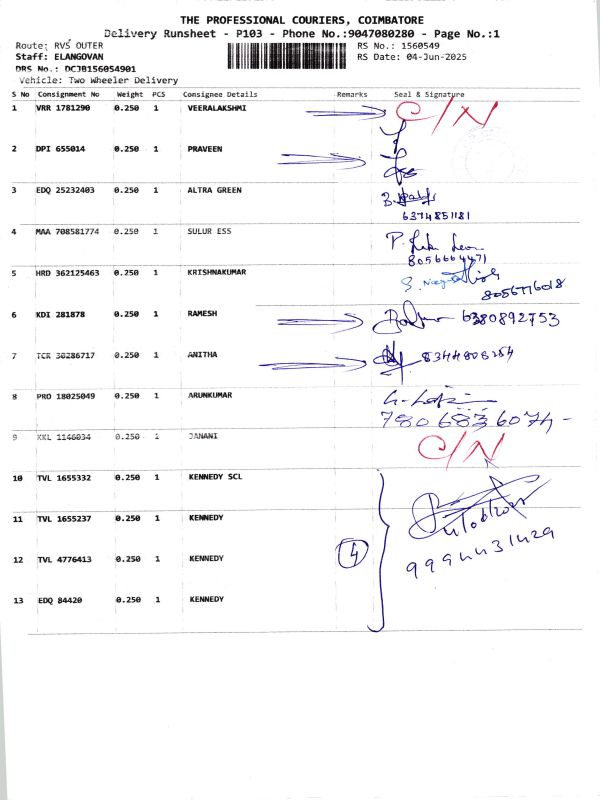 THE PROFESSIONAL COURIERS, COIMBATORE
Delivery Runsheet - P103 - Phone No.:9047080280 - Page No.:1
Route: RVS OUTER RS No.: 1560549
Staff: ELANGOVAN RS Date: 04-Jun-2025
DRS No.: DCJB156054901
Vehicle: Two Wheeler Delivery
S No Consignment No Weight PCS Consignee Details Remarks Seal & Signature
1 VRR 1781290 0.250 1 VEERALAKSHMI C/N
2 DPI 655014 0.250 1 PRAVEEN
3 EDQ 25232403 0.250 1 ALTRA GREEN
6374851181
4 MAA 708581774 0.250 1 SULUR ESS P.
8056664471
5 HRD 362125463 0.250 1 KRISHNAKUMAR S.
8056776018
6 KDI 281878 0.250 1 RAMESH 6380892753
7 TCR 30286717 0.250 1 ANITHA 8344806254
8 PRO 18025049 0.250 1 ARUNKUMAR
7806836074-
9 KKL 1146034 0.250 1 JANANI C/N
10 TVL 1655332 0.250 1 KENNEDY SCL
11 TVL 1655237 0.250 1 KENNEDY
12 TVL 4776413 0.250 1 KENNEDY 4 9994431429
13 EDQ 84420 0.250 1 KENNEDY